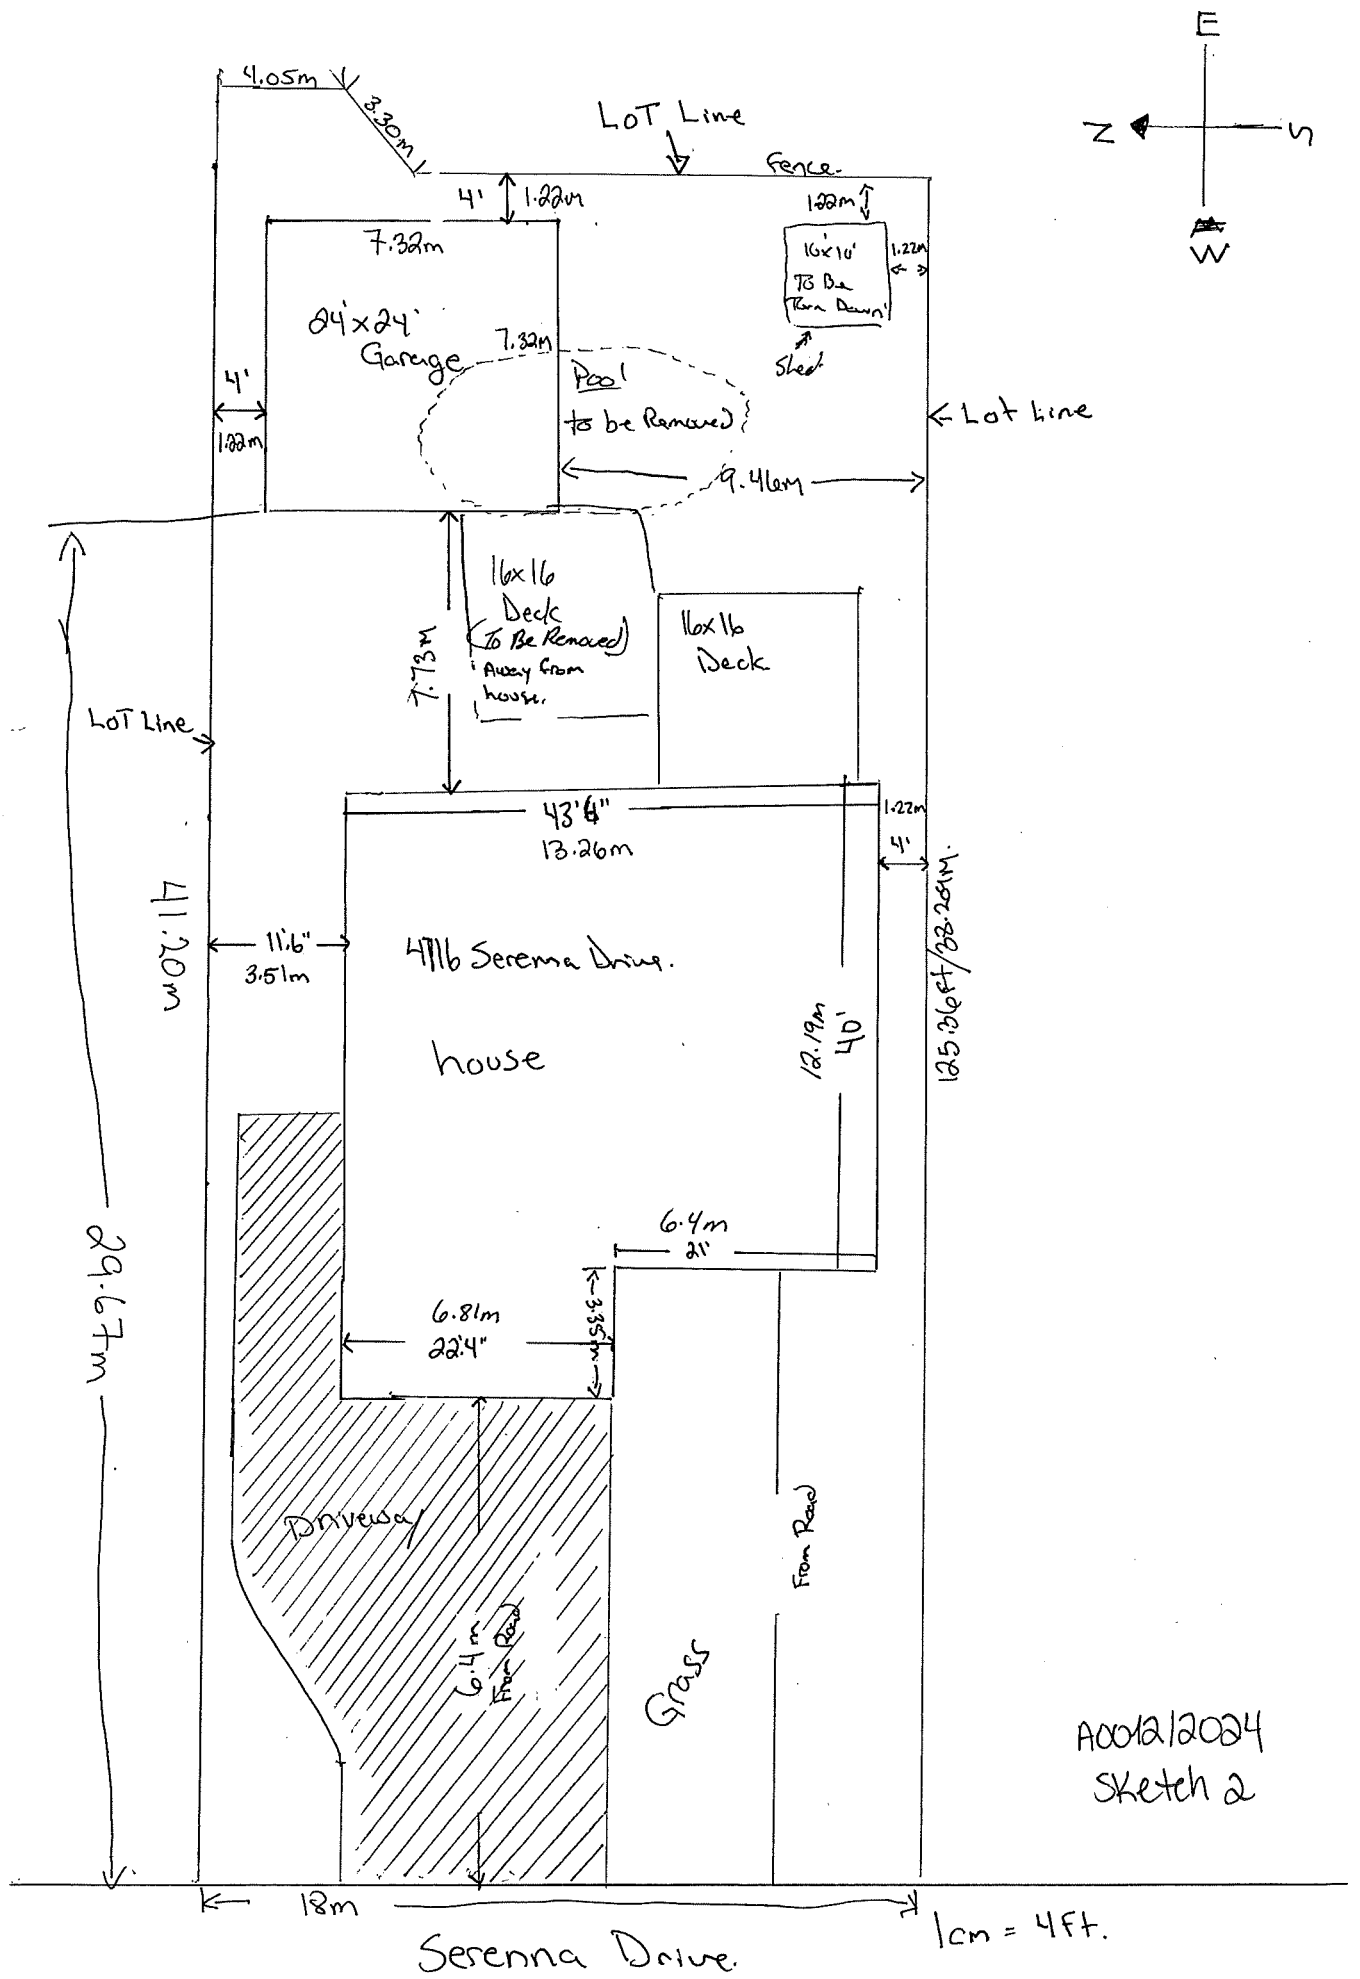 E
N
S
W
4.05m
3.30m
LOT Line
fence.
4' 1.22m
1.22m
7.32m
10'x10'
To Be
Torn Down
1.22m
Shed.
24'x24'
Garage
7.32m
Pool
to be Removed
4'
1.22m
Lot Line
9.46m
16x16
Deck
(To Be Removed)
Away from
house.
16x16
Deck
7.73m
LOT Line
43'6"
13.26m
1.22m
4'
41.20m
11'6"
3.51m
4716 Serenna Drive.
house
12.19m
40'
125.36ft/38.209m.
29.67m
6.4m
21'
6.81m
22'4"
3.35m
Driveway
6.4m
From Road
From Road
Grass
A0012/2024
Sketch 2
18m
1cm = 4Ft.
Serenna Drive.